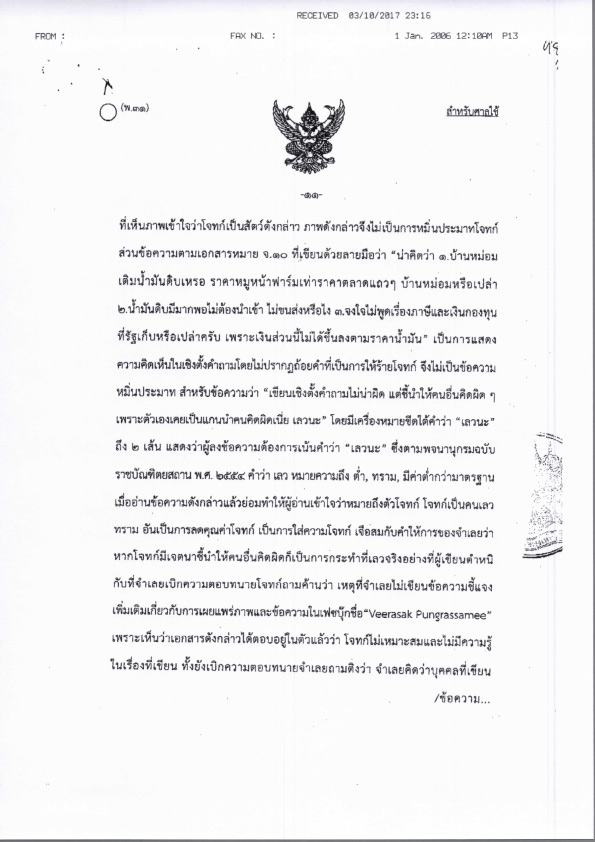 RECEIVED 03/10/2017 23:16
FROM : FAX NO. : 1 Jan. 2006 12:10AM P13
(พ.๓๑) สำหรับศาลใช้
-๑๑-
ที่เห็นภาพเข้าใจว่าโจทก์เป็นสัตว์ดังกล่าว ภาพดังกล่าวจึงไม่เป็นการหมิ่นประมาทโจทก์
ส่วนข้อความตามเอกสารหมาย จ.๑๐ ที่เขียนด้วยลายมือว่า “น่าคิดว่า ๑.บ้านหม่อม
เติมน้ำมันดิบเหรอ ราคาหมูหน้าฟาร์มเท่าราคาตลาดแถวๆ บ้านหม่อมหรือเปล่า
๒.น้ำมันดิบมีมากพอไม่ต้องนำเข้า ไม่ขนส่งหรือไง ๓.จงใจไม่พูดเรื่องภาษีและเงินกองทุน
ที่รัฐเก็บหรือเปล่าครับ เพราะเงินส่วนนี้ไม่ได้ขึ้นลงตามราคาน้ำมัน” เป็นการแสดง
ความคิดเห็นในเชิงตั้งคำถามโดยไม่ปรากฏถ้อยคำที่เป็นการให้ร้ายโจทก์ จึงไม่เป็นข้อความ
หมิ่นประมาท สำหรับข้อความว่า “เขียนเชิงตั้งคำถามไม่น่าผิด แต่ชี้นำให้คนอื่นคิดผิด ๆ
เพราะตัวเองเคยเป็นแกนนำคนคิดผิดเนี่ย เลวนะ” โดยมีเครื่องหมายขีดใต้คำว่า “เลวนะ”
ถึง ๒ เส้น แสดงว่าผู้ลงข้อความต้องการเน้นคำว่า “เลวนะ” ซึ่งตามพจนานุกรมฉบับ
ราชบัณฑิตยสถาน พ.ศ. ๒๕๕๔ คำว่า เลว หมายความถึง ต่ำ, ทราม, มีค่าต่ำกว่ามาตรฐาน
เมื่ออ่านข้อความดังกล่าวแล้วย่อมทำให้ผู้อ่านเข้าใจว่าหมายถึงตัวโจทก์ โจทก์เป็นคนเลว
ทราม อันเป็นการลดคุณค่าโจทก์ เป็นการใส่ความโจทก์ เจือสมกับคำให้การของจำเลยว่า
หากโจทก์มีเจตนาชี้นำให้คนอื่นคิดผิดก็เป็นการกระทำที่เลวจริงอย่างที่ผู้เขียนตำหนิ
กับที่จำเลยเบิกความตอบทนายโจทก์ถามค้านว่า เหตุที่จำเลยไม่เขียนข้อความชี้แจง
เพิ่มเติมเกี่ยวกับการเผยแพร่ภาพและข้อความในเฟซบุ๊กชื่อ“Veerasak Pungrassamee”
เพราะเห็นว่าเอกสารดังกล่าวได้ตอบอยู่ในตัวแล้วว่า โจทก์ไม่เหมาะสมและไม่มีความรู้
ในเรื่องที่เขียน ทั้งยังเบิกความตอบทนายจำเลยถามติงว่า จำเลยคิดว่าบุคคลที่เขียน
/ข้อความ...